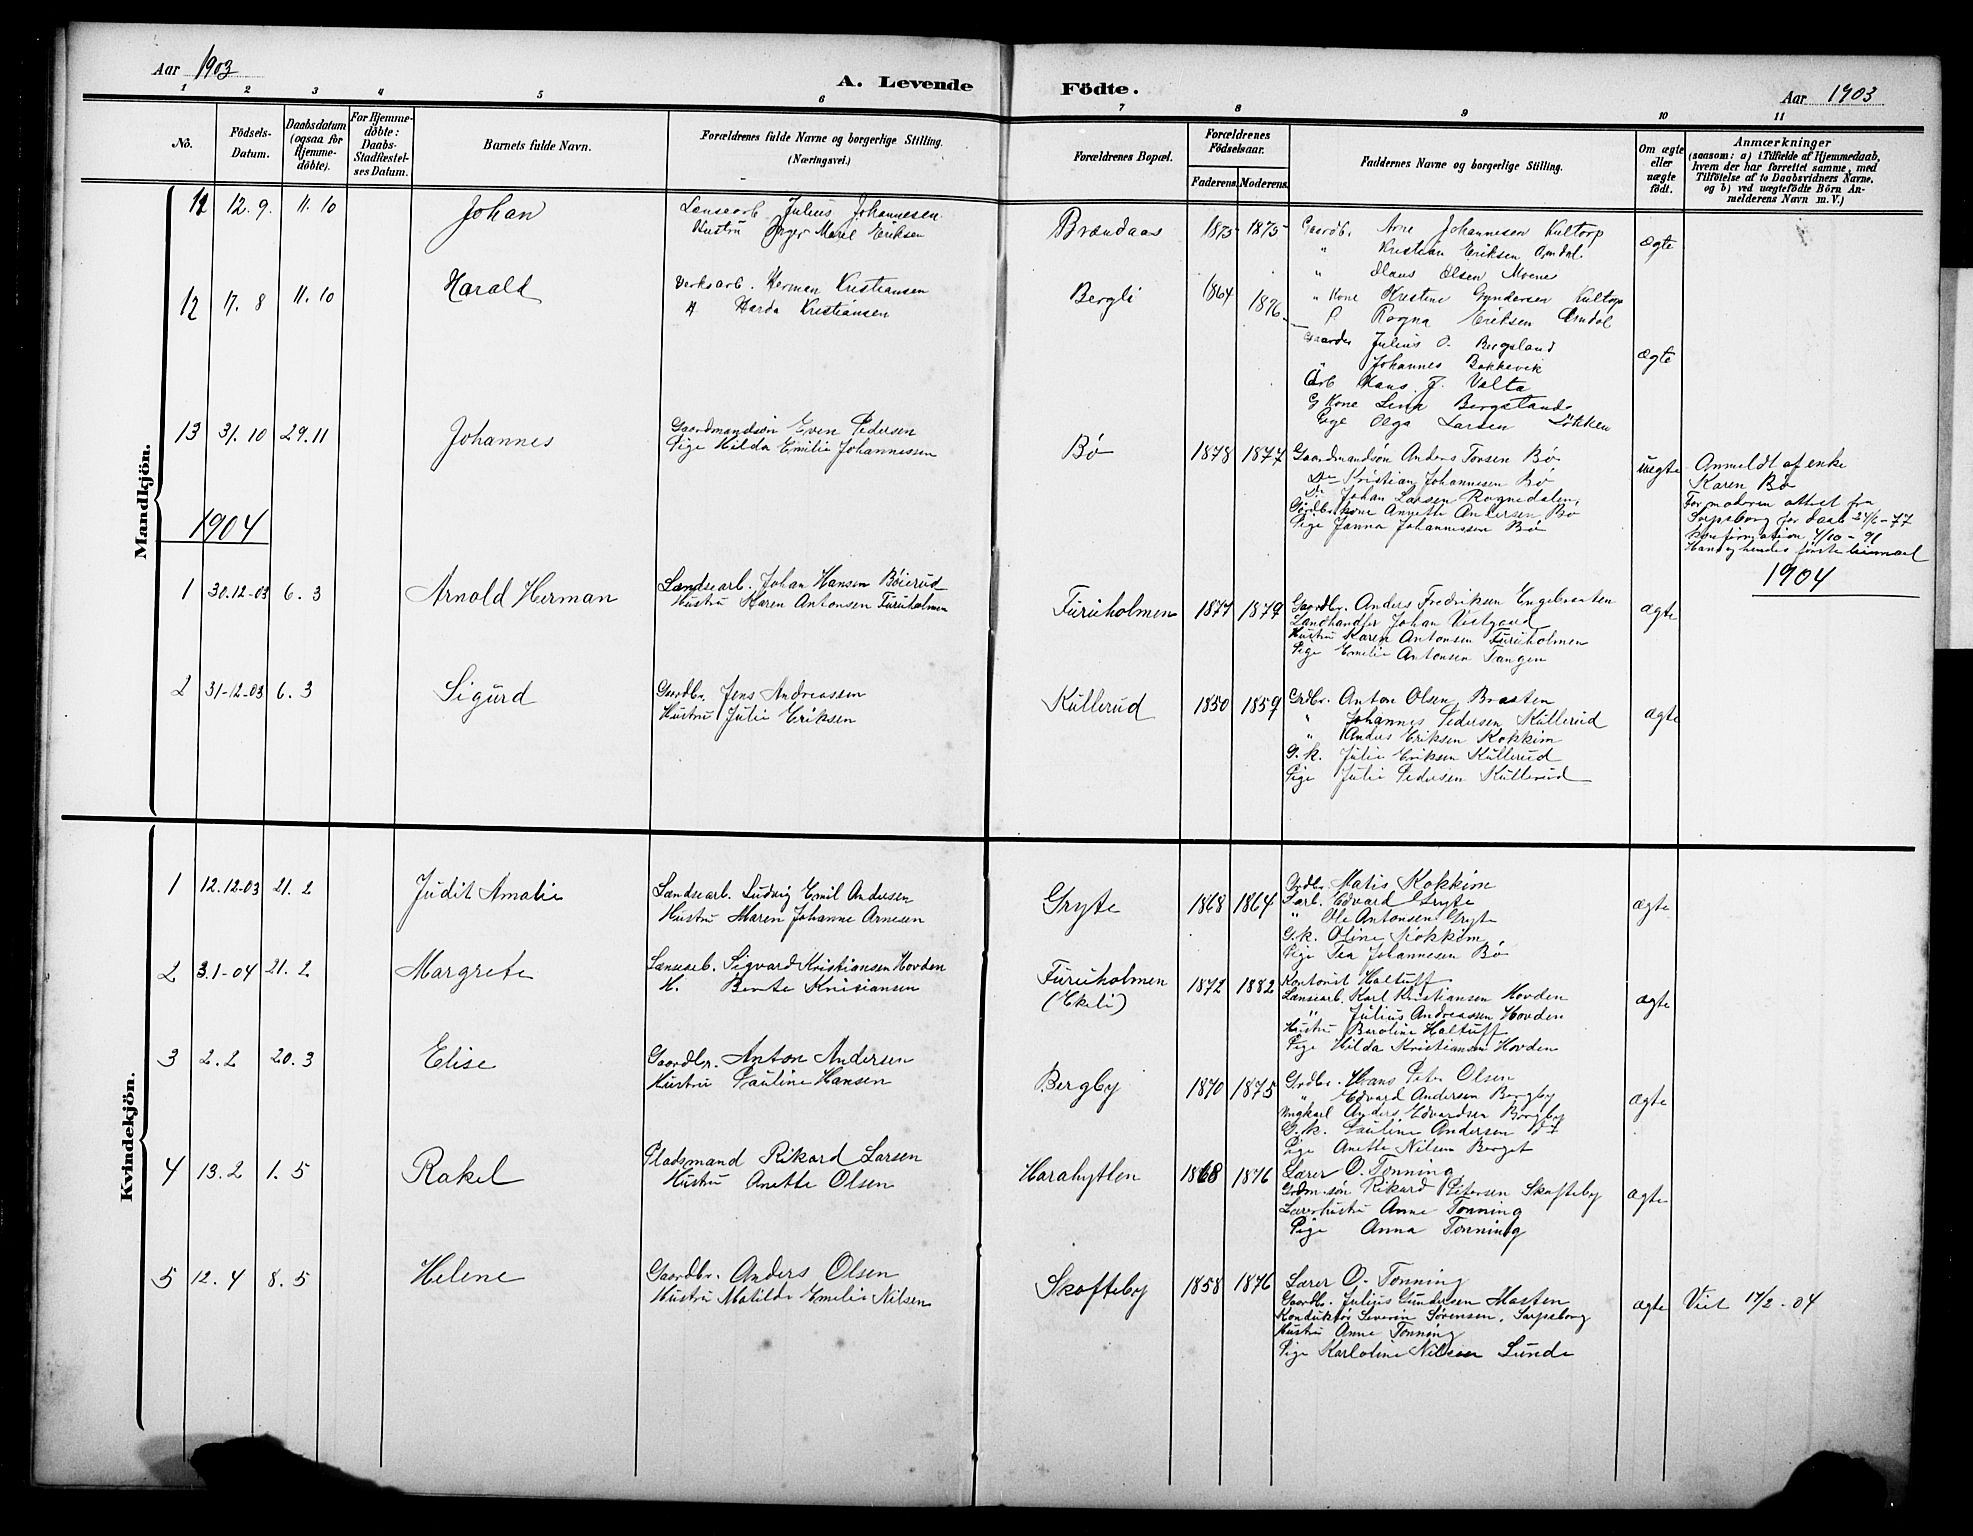 Aar 1903
A. Levende Födte.
Aar 1903
1 2 3 4 5 6 7 8 9 10 11
Nô.
Födsels-Datum.
Daabsdatum (ogsaa for Hjemmedôbte).
For Hjemmedôbte: Daabs-Stadfæstelses Datum.
Barnets fulde Navn.
Forældrenes fulde Navne og borgerlige Stilling. (Næringsvei.)
Forældrenes Bopæl.
Forældrenes Födselsaar.
Faderens. Moderens.
Faddernes Navne og borgerlige Stilling.
Om ægte eller uægte födt.
Anmærkninger
(saasom: a) i Tilfælde af Hjemmedaab, hvem der har forrettet samme, med Tilföielse af to Daabsvidners Navne, og b) ved uægtefödte Börn Anmelderens Navn m. V.)
Mandkjön.
11 12. 9. 11. 10 Johan
Lænsearb. Julius Johannesen
Hustru Inger Marie Eriksen
Brændaas 1875 1875
Gaardb. Arne Johannesen Kultorp
" Kristian Eriksen Omdal
" Olaus Olsen Moene
" Kone Kristine Gundersen Kultorp
P Ragna Eriksen Omdal
ægte
12 17. 8 11. 10 Harald
Verksarb. Herman Kristiansen
H Harda Kristiansen
Bergli 1864 1876
Gaardbr Julius O. Bergsland
" Johannes Bakkevik
Arb Hans J. Valta
G Kone Lina Bergsland
Pige Olga Larsen Løkken
ægte
13 31. 10 29. 11 Johannes
Gaardmandsøn Even Pedersen
Pige Hilda Emilie Johannessen
Bø 1878 1877
Gaardmandsøn Anders Torsen Bø
Do Kristian Johannesen Bø
Do Johan Larsen Rognedalen
Gårdbr. kone Annette Andersen Bø
Pige Janna Johannessen Bø
uægte
Anmeldt af enke
Karen Bø
For moderen attest fra
Sarpsborg for daab 24/6-77
konfirmation 4/10-91
Hans og hendes første leiermaal
1904
1904
1 30.12-03 6. 3 Arnold Herman
Lændsearb. Johan Hansen Bøierud
Hustru Karen Antonsen Furuholmen
Furuholmen 1877 1879
Gaardbr. Anders Fredriksen Engebraaten
Landhandler Johan Vestgaard
Hustru Karen Antonsen Furuholmen
Pige Emilie Antonsen Tangen
ægte
2 31-12-03 6. 3 Sigurd
Gaardbr. Jens Andreassen
Hustru Julie Eriksen
Kullerud 1850 1859
Grdbr. Anton Olsen Braaten
" Johannes Pedersen Kullerud
" Anders Eriksen Kokkim
G. k. Julie Eriksen Kullerud
Pige Julie Pedersen Kullerud
ægte
Kvindekjön.
1 12.12-03 21. 2 Judit Amalie
Lændsearb. Ludvig Emil Andersen
Hustru Maren Johanne Arnesen
Gryte 1868 1864
Grdbr. Matis Kokkim
Larb. Edvard Gryte
" Ole Antonsen Gryte
G. k. Oline Kokkim
Pige Tea Johannesen Bø
ægte
2 3.1-04 21. 2 Margrete
Lænseb. Sigvard Kristiansen Hovden
H. Berte Kristiansen
Furuholmen
(Ekeli) 1872 1882
Kontorist Haltuff
Lænsearb. Karl Kristiansen Hovden
" Julius Andreassen Hovden
Hustru Baroline Haltuff
Pige Hilda Kristiansen Hovden
ægte
3 2. 2 20. 3 Elise
Gaardbr. Anton Andersen
Hustru Pauline Hansen
Bergby 1870 1875
Grdbr. Hans Peter Olsen
" Edvard Andersen Bergby
Ungkarl Anders Edvardsen Bergby
G. k. Pauline Andersen
Pige Anette Nilsen Berget
ægte
4 13. 2 1. 5 Rakel
Pladsmand Rikard Larsen
Hustru Anette Olsen
Harahytten 1868 1876
Lærer O. Tonning
Grdm. søn Rikard Petersen Skofteby
Lærerhustru Anne Tonning
Pige Anna Tonning
ægte
5 12. 4 8. 5 Helene
Gaardbr. Anders Olsen
Hustru Matilde Emelie Nilsen
Skofteby 1858 1876
Lærer O. Tonning
Gaardbr. Julius Gundersen Hasten
Konduktør Severin Sørensen, Sarpsborg
Hustru Anne Tonning
Pige Karloline Nilsen Lunde
ægte
Viet 17/2-04